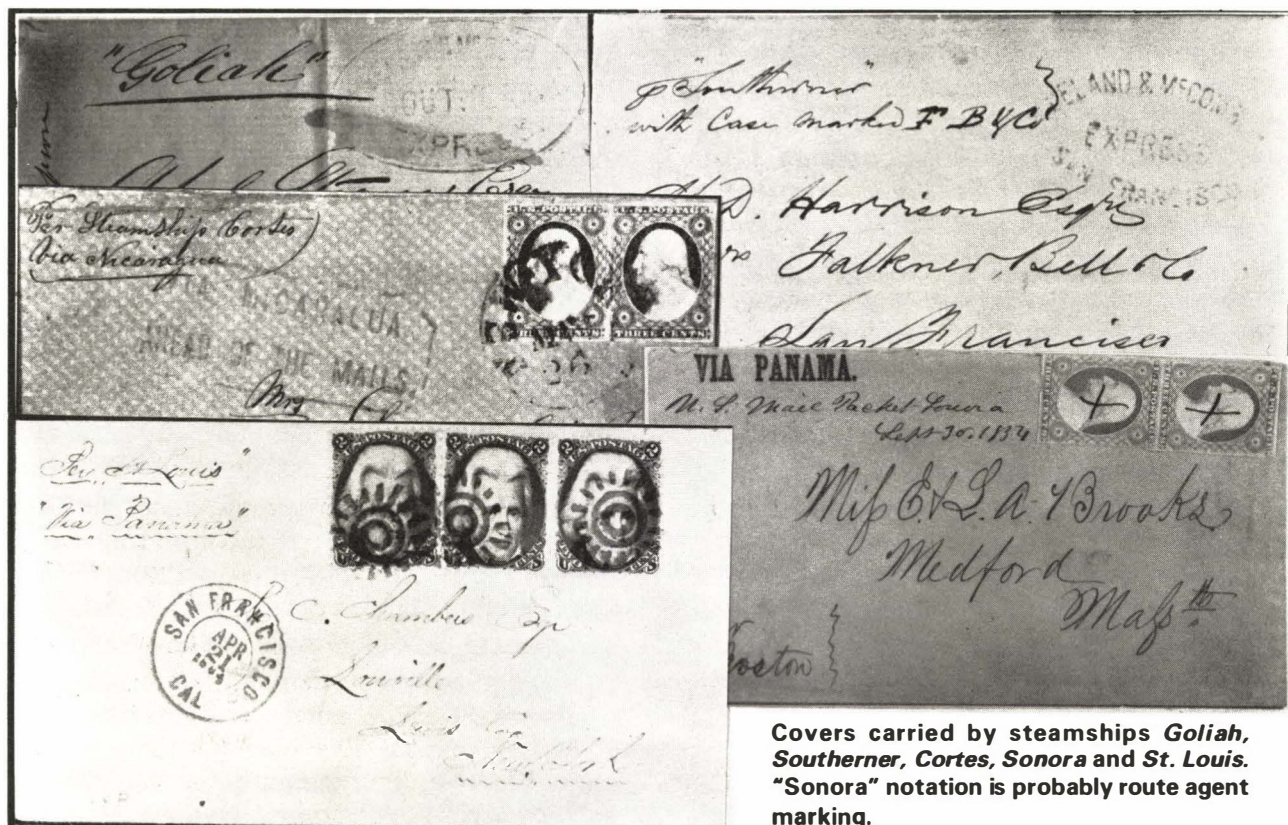 "Goliah"
OUT
EXPRE
p "Southerner"
with Case marked F B & Co
ELAND & McCOM
EXPRESS
SAN FRANCISCO
D. Harrison Esqre
Falkner, Bell & Co
San Francisco
Per Steamship Cortes
Via Nicaragua
VIA NICARAGUA
AHEAD OF THE MAILS.
Mrs
U.S. POSTAGE
U.S. POSTAGE
THREE CENTS
VIA PANAMA.
U. S. Mail Packet Sonora
Sept 30. 1854
Miss E. & L. A. Brooks
Medford
Mass
Boston
"Per St Louis"
"Via Panama"
SAN FRANCISCO
APR
21
CAL
C. Chambers Esq
Louville
Lewis Co
New York
Covers carried by steamships Goliah,
Southerner, Cortes, Sonora and St. Louis.
"Sonora" notation is probably route agent
marking.